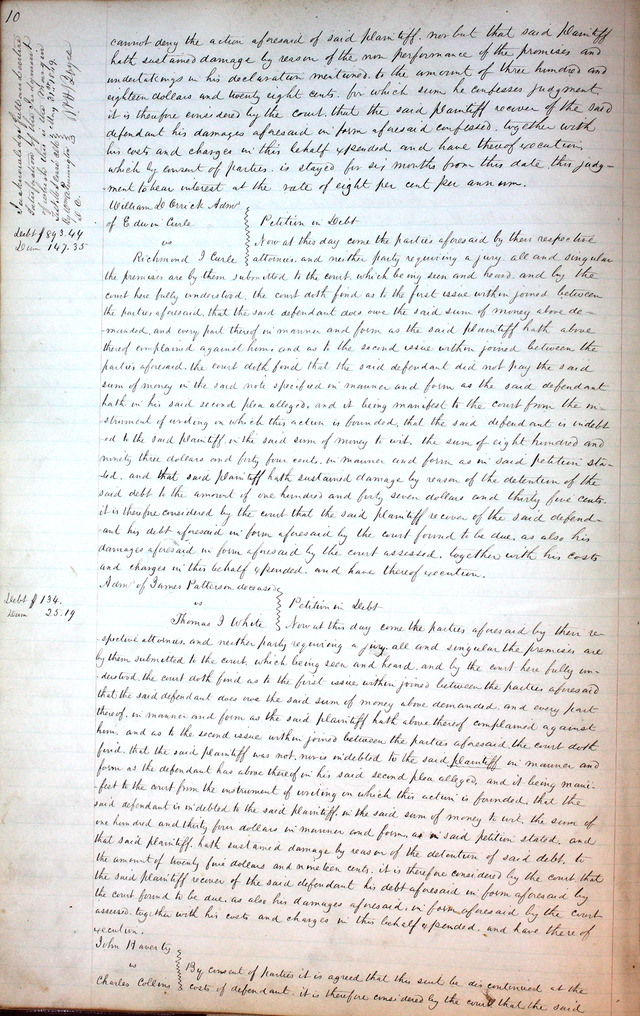 10
cannot deny the action aforesaid of said plaintiff. nor but that said plaintiff
hath sustained damage by reason of the non performance of the promises and
undertakings in his declaration mentioned. to the amount of three hundred and
eighteen dollars and twenty eight cents. for which sum he confesses judgment.
it is therefore considered by the court, that the said plaintiff recover of the said
defendant his damages aforesaid in form aforesaid confessed. together with
his costs and charges in this behalf expended. and have thereof execution
which by consent of parties. is stayed for six months from this date. this judg-
ment to bear interest at the rate of eight per cent per annum.
satisfaction of this Judgment
May 31st 1839
William D Orrick Admr
of Edwin Curle
vs
Richmond J Curle
Petition in Debt
Debt $893.44
Dam 147.35
Now at this day come the parties aforesaid by their respective
attornies. and neither party requiring a jury. all and singular
the premises are by them submitted to the court, which being seen and heard. and by the
court here fully understood, the court doth find as to the first issue within joined between
the parties aforesaid, that the said defendant does owe the said sum of money above de-
manded, and every part thereof in manner and form as the said plaintiff hath above
thereof complained against him. and as to the second issue within joined between the
parties aforesaid. the court doth find that the said defendant did not pay the said
sum of money in the said note specified in manner and form as the said defendant
hath in his said second plea alleged. and it being manifest to the court from the in-
strument of writing on which this action is founded, that the said defendant is indebt
ed to the said plaintiff in the said sum of money to wit, the sum of eight hundred and
ninety three dollars and forty four cents, in manner and form as in said petition sta-
ted. and that said plaintiff hath sustained damage by reason of the detention of the
said debt to the amount of one hundred and forty seven dollars and thirty five cents.
it is therefore considered by the court that the said plaintiff recover of the said defend-
ant his debt aforesaid in form aforesaid by the court found to be due. as also his
damages aforesaid in form aforesaid by the court assessed. together with his costs
and charges in this behalf expended. and have thereof execution.
Admr of James Patterson deceased
vs
Thomas J White
Petition in Debt
Debt $134.
Dam 25.19
Now at this day come the parties aforesaid by their re-
spective attornies. and neither party requiring a jury. all and singular the premises are
by them submitted to the court, which being seen and heard. and by the court here fully un-
derstood, the court doth find as to the first issue within joined between the parties aforesaid
that the said defendant does owe the said sum of money above demanded. and every part
thereof. in manner and form as the said plaintiff hath above thereof complained against
him. and as to the second issue within joined between the parties aforesaid. the court doth
find. that the said plaintiff was not. nor is indebted to the said plaintiff in manner and
form as the defendant has above thereof in his said second plea alleged, and it being mani-
fest to the court from the instrument of writing on which this action is founded, that the
said defendant is indebted to the said plaintiff, in the said sum of money to wit. the sum of
one hundred and thirty four dollars in manner and form, as in said petition stated. and
that said plaintiff. hath sustained damage by reason of the detention of said debt. to
the amount of twenty five dollars and nineteen cents. it is therefore considered by the court, that
the said plaintiff recover of the said defendant his debt aforesaid in form aforesaid by
the court found to be due. as also his damages aforesaid. in form aforesaid by the court
assessed. together with his costs and charges in this behalf expended. and have there of
execution.
John Haverty
vs
Charles Collins
By consent of parties it is agreed that this suit be dis continued at the
costs of defendant. it is therefore considered by the court that the said